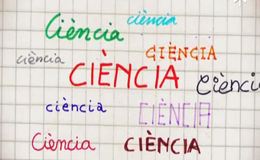 Ciència
ciència
ciència
CIÈNCIA
CIÈNCIA
Ciènci
ciència
CIÈNCIA
Ciència
CIÈNCIA